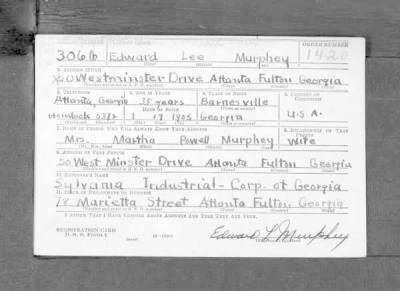 ORDER NUMBER
306b Edward Lee Murphey 1420
50 Westminster Drive Atlanta Fulton Georgia
Atlanta, Georgia 35 years Barnesville
Hemlock 0372 1 17 1905 Georgia U.S.A.
Mrs. Martha Powell Murphey Wife
50 West Minster Drive Atlanta Fulton Georgia
Sylvania Industrial - Corp. of Georgia
78 Marietta Street Atlanta Fulton Georgia
I AFFIRM THAT I HAVE VERIFIED ABOVE ANSWERS AND THAT THEY ARE TRUE.
REGISTRATION CARD
D. S. S. FORM 1
Edward L Murphey